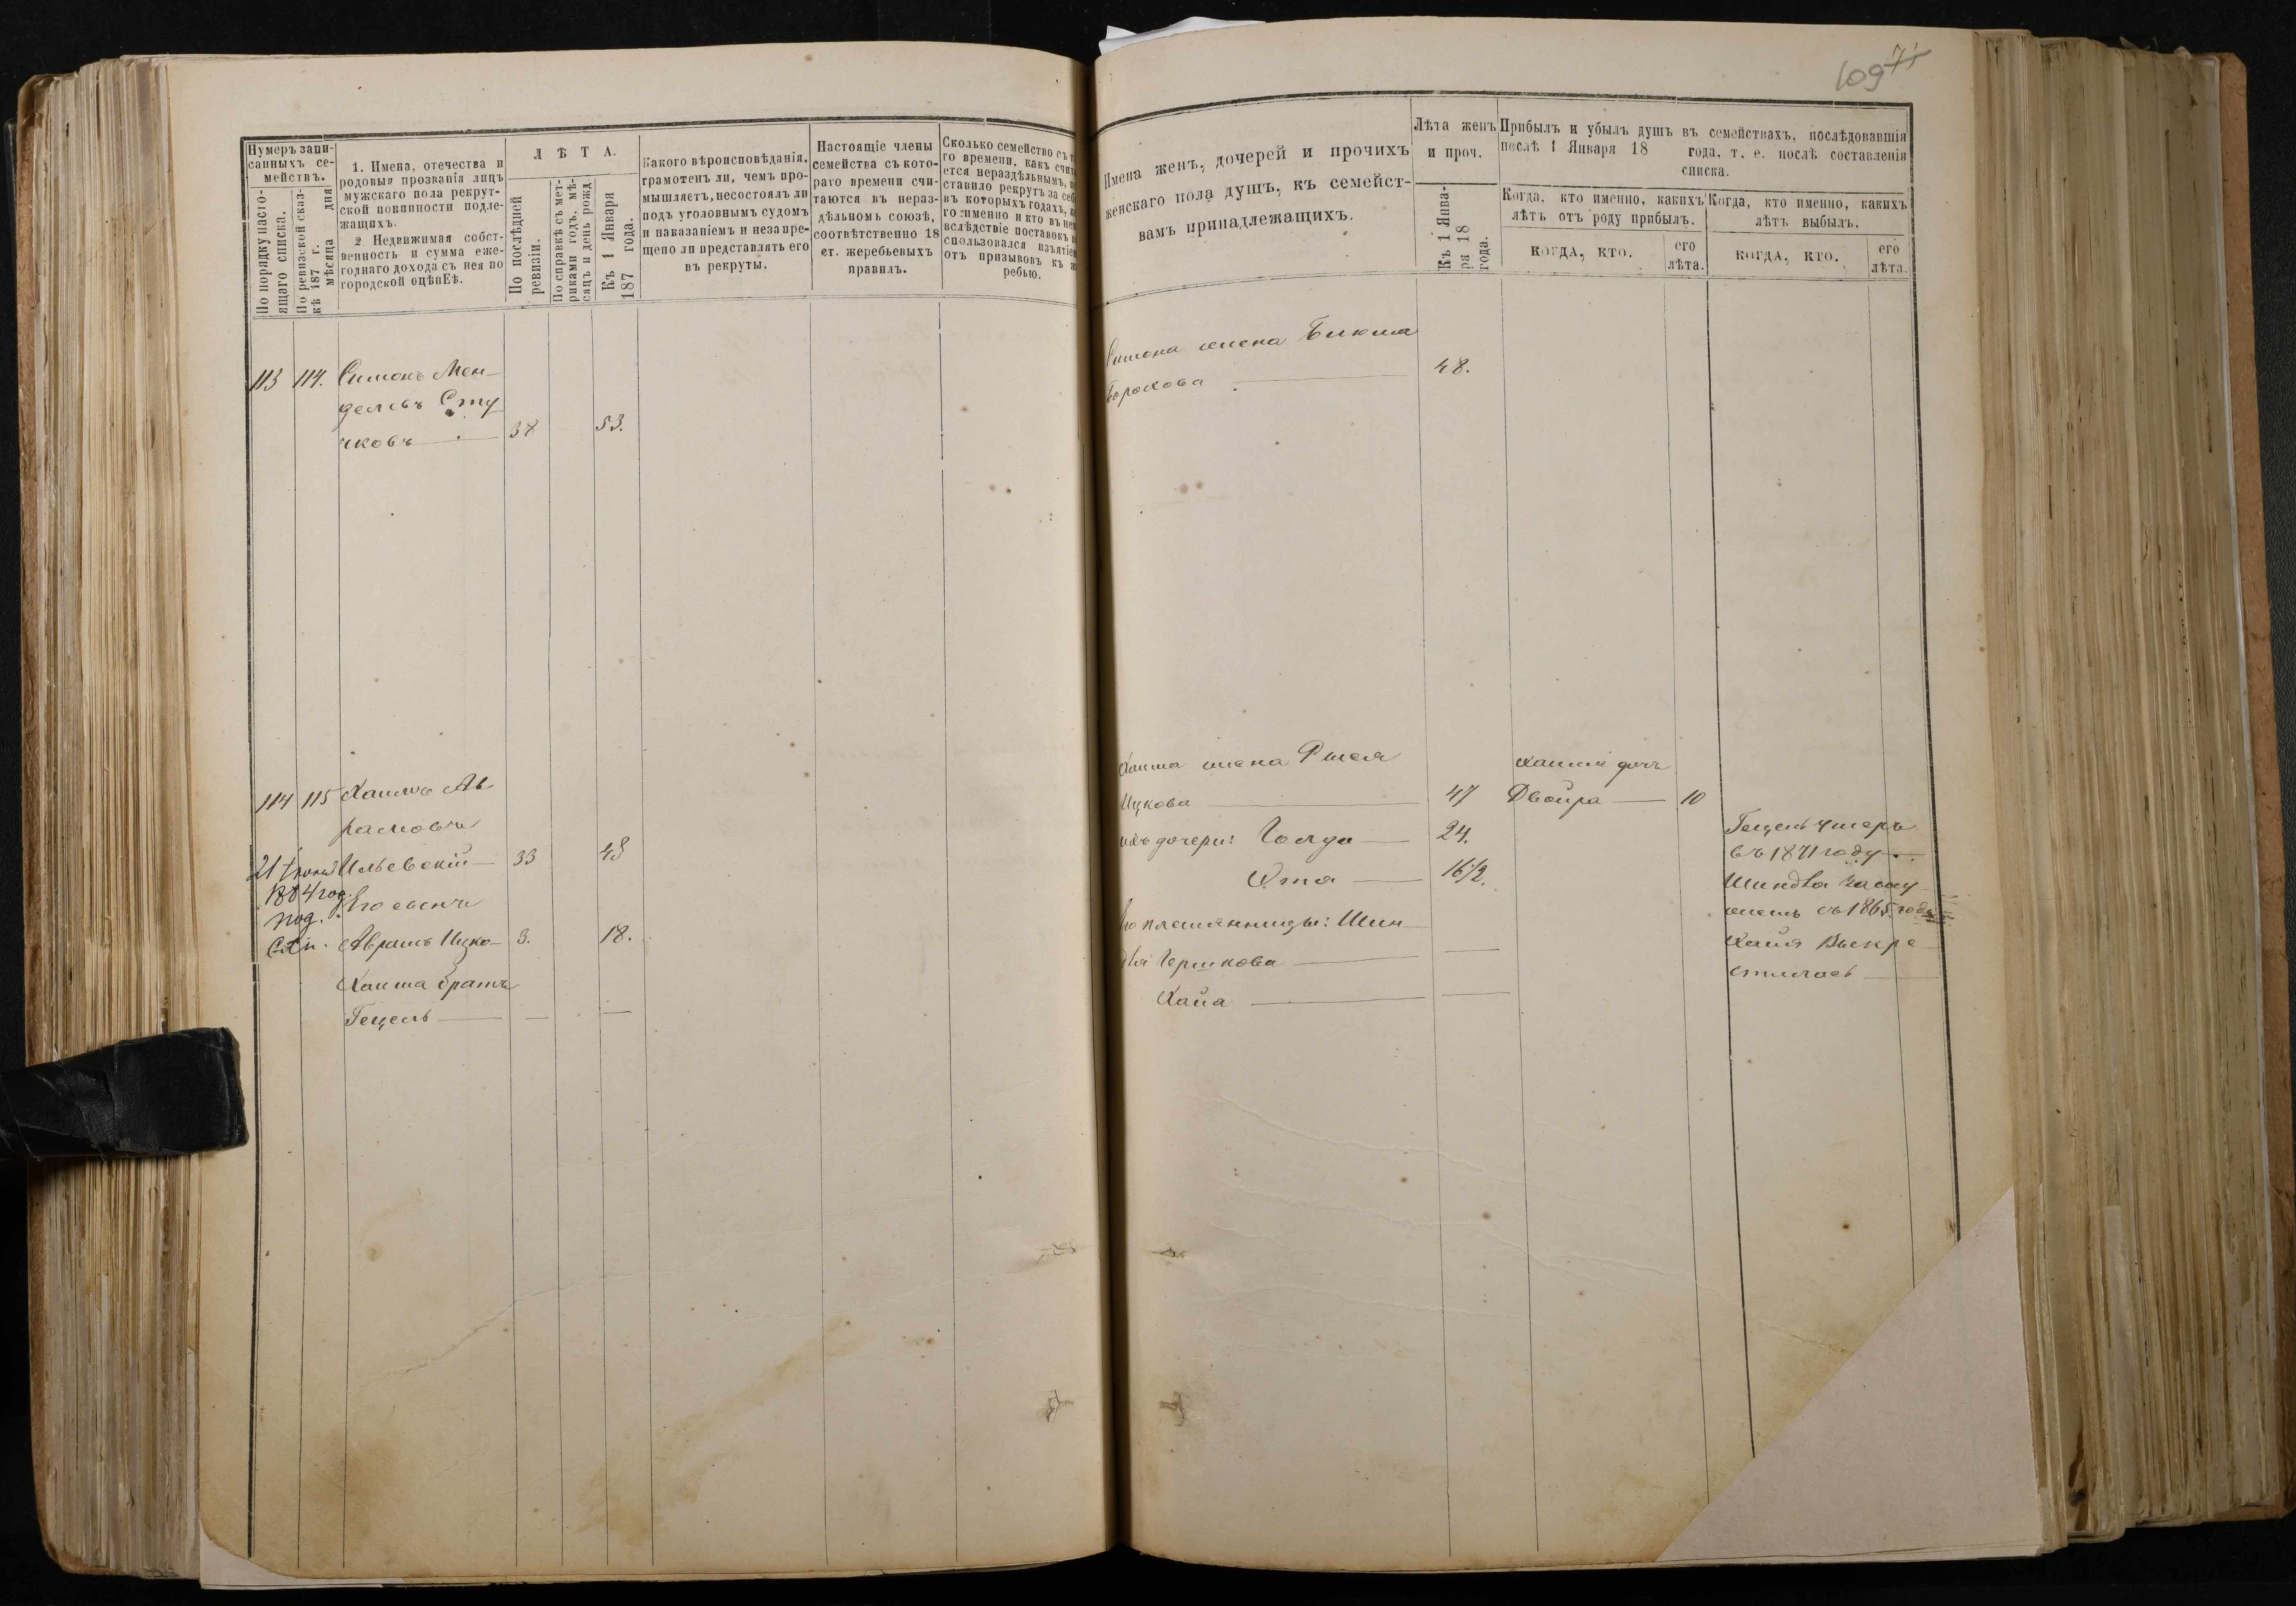 109 71
Нумеръ запи-
санныхъ се-
мействъ.
По порядку насто-
ящаго списка.
По ревизской сказ-
кѣ 187 г.
мѣсяца дня
1. Имена, отечества и
родовыя прозванія лицъ
мужскаго пола рекрут-
ской повинности подле-
жащихъ.
2 Недвижимая собст-
венность и сумма еже-
годнаго дохода съ нея по
городской оцѣнкѣ.
Л Ѣ Т А.
По послѣдней
ревизіи.
По справкѣ съ мет-
риками годъ, мѣ-
сяцъ и день рожд
Къ 1 Января
187 года.
Какого вѣроисповѣданія,
грамотенъ ли, чемъ про-
мышляетъ, несостоялъ ли
подъ уголовнымъ судомъ
и наказаніемъ и незапре-
щено ли представлять его
въ рекруты.
Настоящіе члены
семейства съ кото-
раго времени счи-
таются въ нераз-
дѣльномъ союзѣ,
соотвѣтственно 18
ст. жеребьевыхъ
правилъ.
Сколько семейство съ
го времени, какъ счит
ется нераздѣльнымъ,
ставило рекрутъ за себ
въ которыхъ годахъ,
го именно и кто въ нем
вслѣдствіе поставокъ
спользовался изъятіем
отъ призывовъ къ ж
ребью.
113 114. Симонъ Мен-
делевъ Сту
чковъ 38 53.
114 115 Хаимъ Аб
рамовъ
Ильевскій 33 48
21 Іюня
1884 год.
под.
Его сынъ
Абрамъ Ицко- 3. 18.
Хаима братъ
Гецель — —
Имена женъ, дочерей и прочихъ
женскаго пола душъ, къ семейст-
вамъ принадлежащихъ.
Лѣта женъ
и проч.
Къ 1 Янва-
ря 18
года.
Прибылъ и убылъ душъ въ семействахъ, послѣдовавшія
послѣ 1 Января 18 года, т. е. послѣ составленія
списка.
Когда, кто именно, какихъ
лѣтъ отъ роду прибылъ.
Когда, кто именно, какихъ
лѣтъ выбылъ.
КОГДА, КТО.
его
лѣта.
КОГДА, КТО.
его
лѣта.
Симона жена
Борохова 48.
Хаима жена
Ицкова 47
ихъ дочери: Голда 24.
16 1/2.
Его племянницы: Шин
Гершкова —
Хайя —
Хаима дочь
Двойра 10
Гецель умеръ
въ 1871 году
въ замуж-
жемъ съ 1865 года
Хайя выкре
стилась